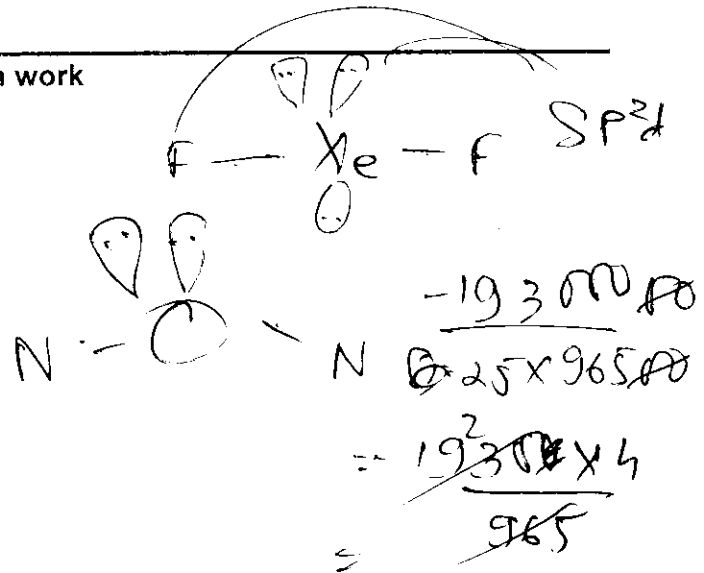 work
F — Xe — F Sp²d
N - O - N
-1930000
0.25 x 96500
= 19300 x 4
2
965
=